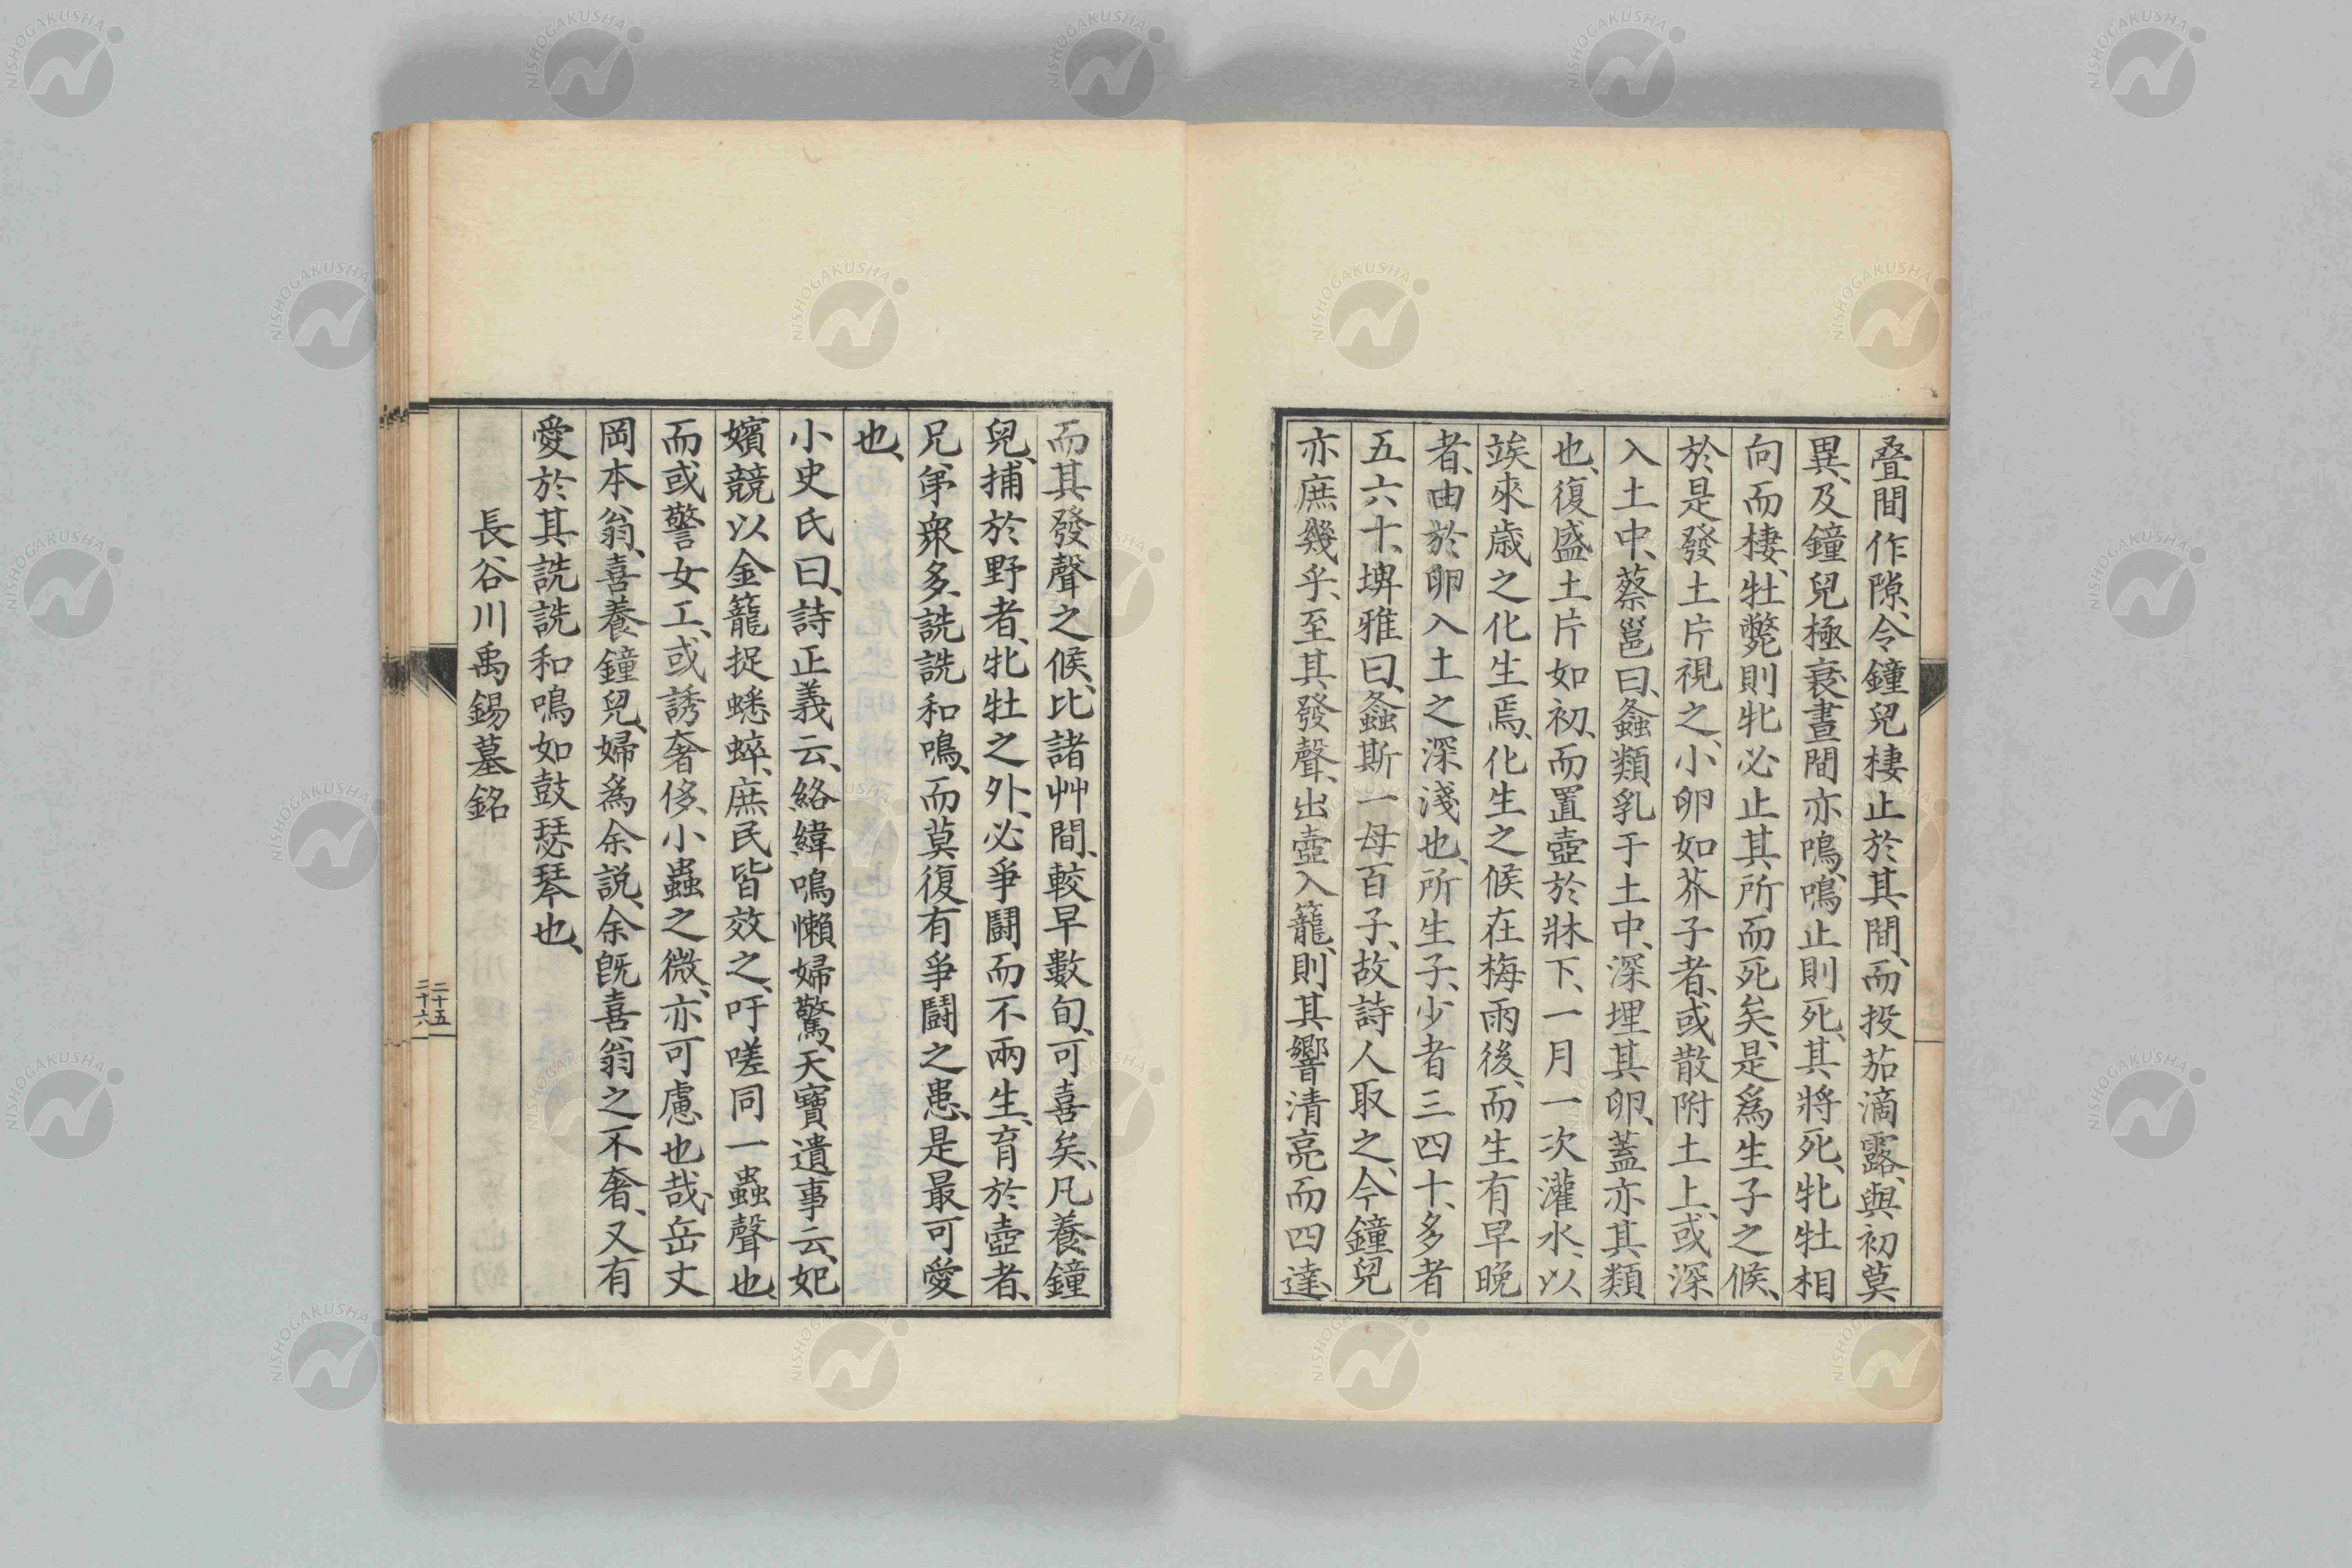 疊間作隙、令鐘兒棲止於其間、而投茄滴露、與初莫
異、及鐘兒極衰晝間亦鳴、鳴止則死、其將死、牝牡相
向而棲、牡斃則牝必止其所而死矣、是爲生子之候、
於是發土片視之、小卵如芥子者、或散附土上、或深
入土中、蔡邕曰、螽類乳于土中、深埋其卵、蓋亦其類
也、復盛土片如初、而置壺於牀下、一月一次灌水、以
竢來歳之化生焉、化生之候在梅雨後、而生有早晩
者、由於卵入土之深淺也、所生子、少者三四十、多者
五六十、埤雅曰、螽斯一母百子、故詩人取之、今鐘兒
亦庶幾乎、至其發聲、出壺入籠、則其響清亮而四達、
而其發聲之候、比諸艸間、較早數旬、可喜矣、凡養鐘
兒、捕於野者、牝牡之外、必爭鬪而不兩生、育於壺者、
兄弟衆多、詵詵和鳴、而莫復有爭鬪之患、是最可愛
也、
小史氏曰、詩正義云、絡緯鳴懶婦驚、天寶遺事云、妃
嬪競以金籠捉蟋蟀、庶民皆效之、吁嗟同一蟲聲也、
而或警女工、或誘奢侈、小蟲之微、亦可慮也哉、岳丈
岡本翁、喜養鐘兒、婦爲余説、余既喜翁之不奢、又有
愛於其詵詵和鳴如鼓瑟琴也、
長谷川禹錫墓銘
二十五
二十六
NISHOGAKUSHA